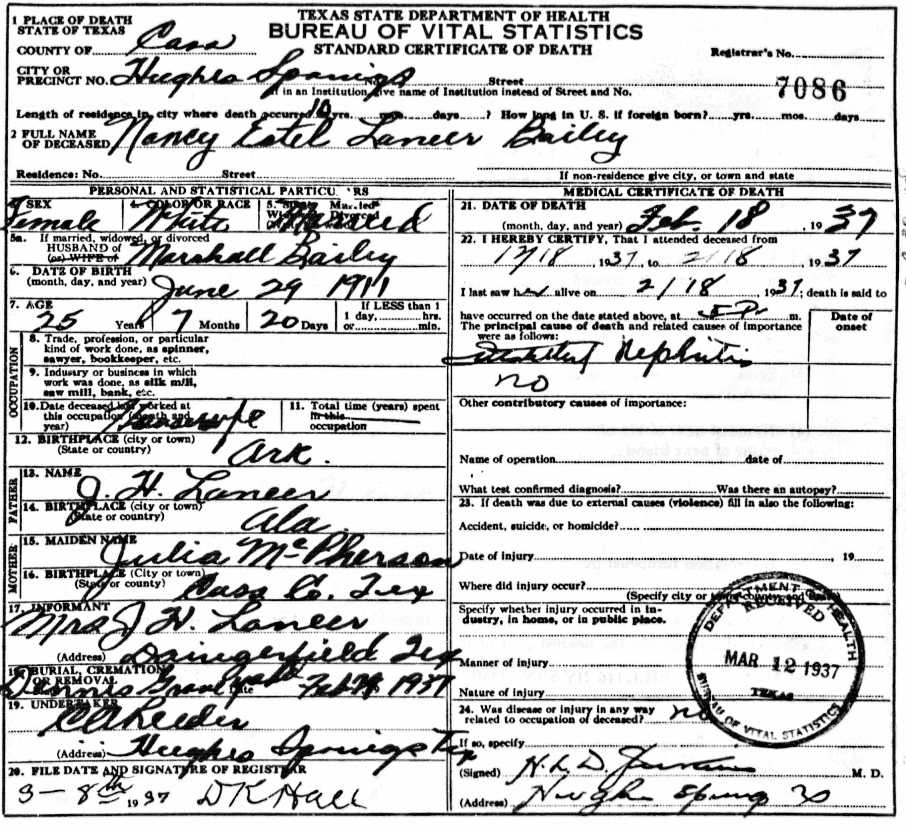 TEXAS STATE DEPARTMENT OF HEALTH
BUREAU OF VITAL STATISTICS
STANDARD CERTIFICATE OF DEATH
1 PLACE OF DEATH
STATE OF TEXAS
COUNTY OF Cass
Registrar's No.
CITY OR
PRECINCT NO. Hughes Springs Street
give name of Institution instead of Street and No.
7086
Length of residence in city where death occurred 10 yrs. mos. days? How long in U. S. if foreign born? yrs. mos. days
2 FULL NAME
OF DECEASED Nancy Estel Laneer Bailey
Residence: No. Street
If non-residence give city, or town and state
PERSONAL AND STATISTICAL PARTICU RS
SEX 4. COLOR OR RACE 5.
Female White Married
5a. If married, widowed, or divorced
HUSBAND of
(or) WIFE of Marshall Bailey
6. DATE OF BIRTH
(month, day, and year) June 29 1911
7. AGE If LESS than 1
25 Years 7 Months 20 Days 1 day, hrs.
or min.
OCCUPATION
8. Trade, profession, or particular
kind of work done, as spinner,
sawyer, bookkeeper, etc.
9. Industry or business in which
work was done, as silk mill,
saw mill, bank, etc.
10. Date deceased last worked at
this occupation (month and
year)
11. Total time (years) spent
in this
occupation
12. BIRTHPLACE (city or town)
(State or country) Ark.
FATHER
13. NAME
J. H. Laneer
14. BIRTHPLACE (city or town)
(State or country) Ala.
MOTHER
15. MAIDEN NAME
Julia McPherson
16. BIRTHPLACE (City or town)
(State or country) Cass Co. Tex
17. INFORMANT
Mrs J H. Laneer
(Address) Daingerfield Tex
BURIAL, CREMATION
OR REMOVAL
Date Feb 1937
19. UNDERTAKER
(Address) Hughes Springs Tex
20. FILE DATE AND SIGNATURE OF REGISTRAR
3- 8th 1937 D K Hall
MEDICAL CERTIFICATE OF DEATH
21. DATE OF DEATH
(month, day, and year) Feb. 18, 1937
22. I HEREBY CERTIFY, That I attended deceased from
, 1937, to 2/18 1937
I last saw her alive on 2/18 1937; death is said to
have occurred on the date stated above, at m.
The principal cause of death and related causes of importance
were as follows:
Date of
onset
Nephritis
no
Other contributory causes of importance:
Name of operation date of
What test confirmed diagnosis? Was there an autopsy?
23. If death was due to external causes (violence) fill in also the following:
Accident, suicide, or homicide?
Date of injury 19
Where did injury occur?
(Specify city or town, county, and State)
Specify whether injury occurred in in-
dustry, in home, or in public place.
Manner of injury
Nature of injury
24. Was disease or injury in any way
related to occupation of deceased? no
If so, specify
(Signed) M. D.
(Address) Hughes Springs
DEPARTMENT OF HEALTH
RECEIVED
MAR 12 1937
TEXAS
BUREAU OF VITAL STATISTICS